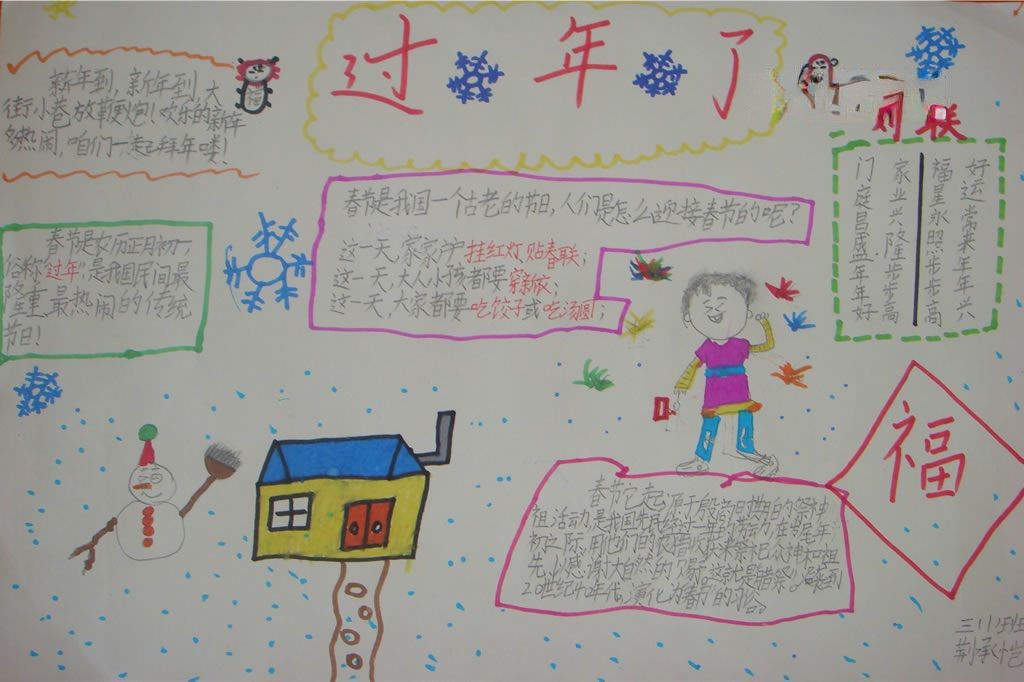 过年了
新年到,新年到,大
街小巷放鞭炮!欢乐的新年
多热闹,咱们一起拜年喽!
春节是农历正月初一,
俗称过年,是我国民间最
隆重、最热闹的传统
节日!
春节是我国一个古老的节日,人们是怎么迎接春节的呢?
这一天,家家户户挂红灯贴春联;
这一天,大人小孩都要穿新衣;
这一天,大家都要吃饺子或吃汤圆;
联
好运常来年年兴
福星永照步步高
家业兴隆步步高
门庭昌盛年年好
福
春节它起源于殷商时期的祭神
祖活动是我国先民
初之际,用他们的
先人感谢大自然的
20世纪40年代,演化为春节的习俗。
三(1)班
荆承恺